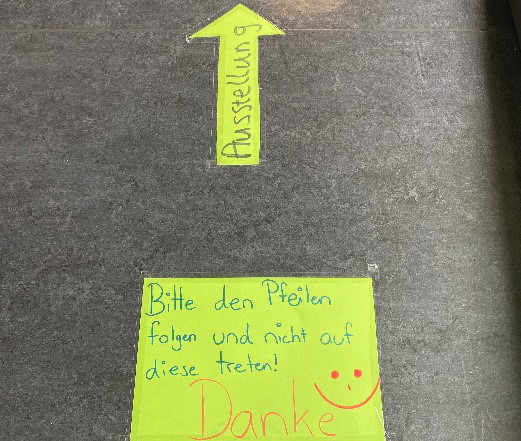 Ausstellung
Bitte den Pfeilen
folgen und nicht auf
diese treten!
Danke